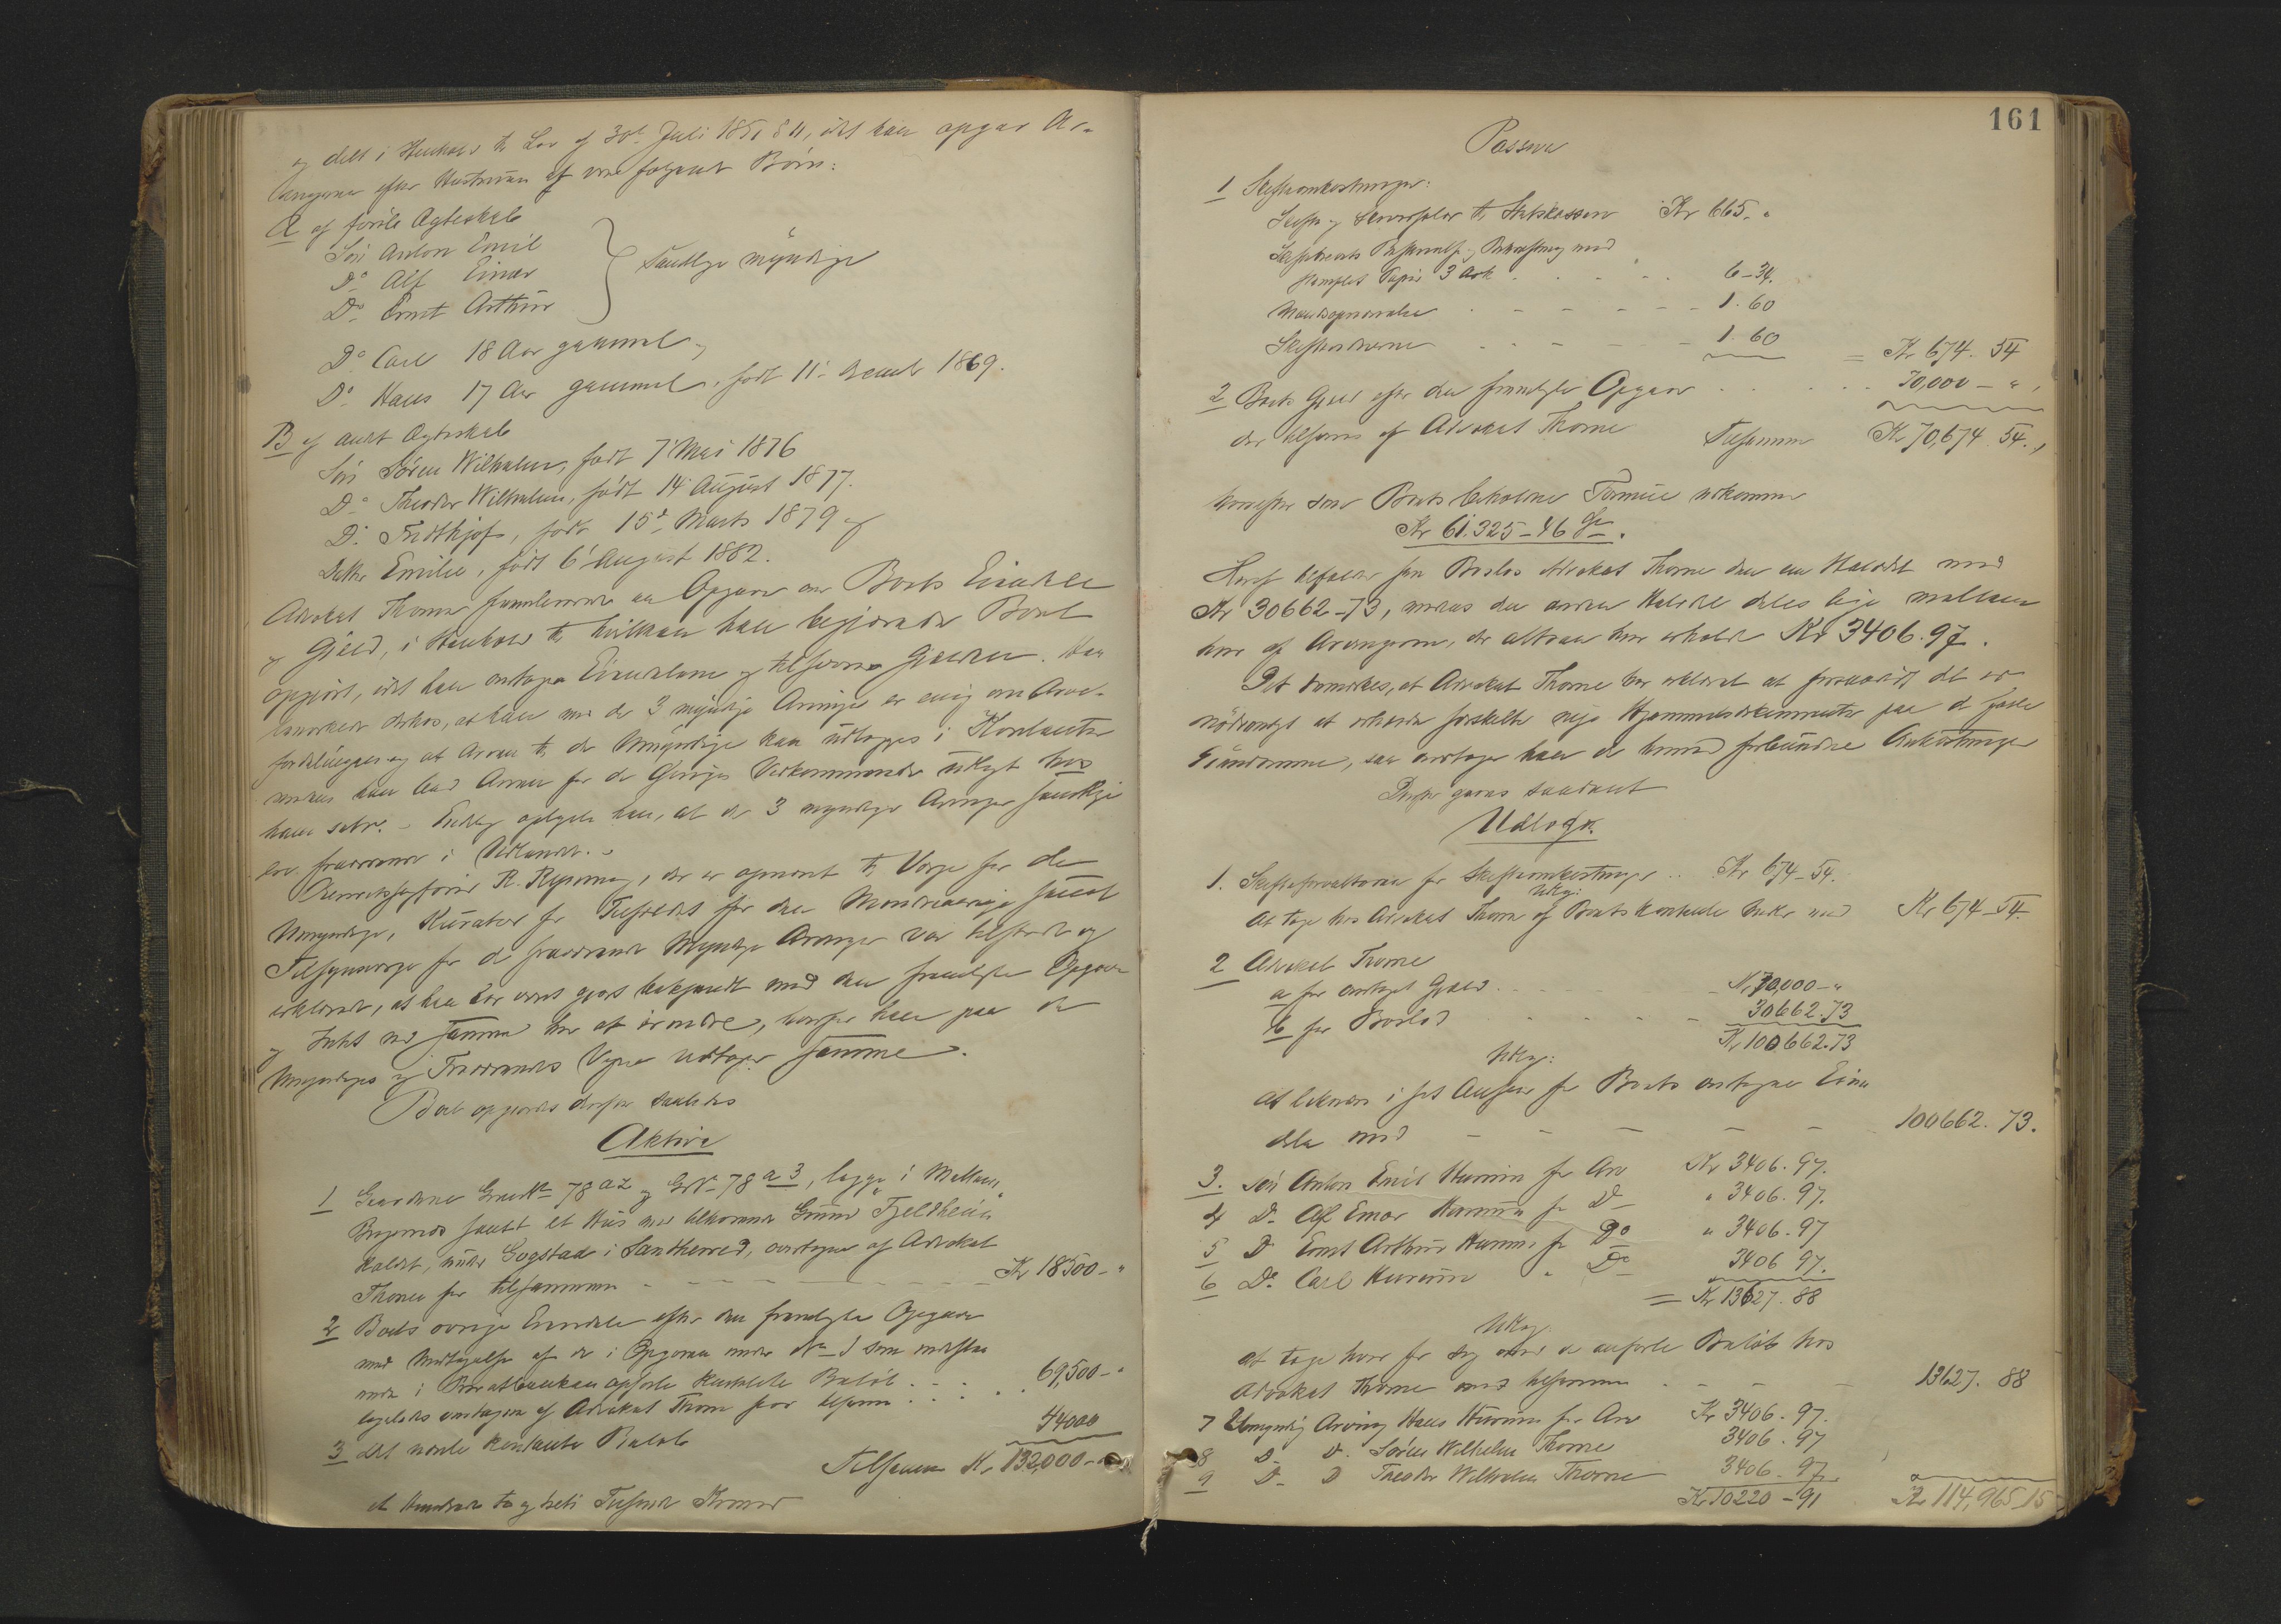 og delt i Henhold til Lov af 30te Juli 1851 § 11, idet han opgav Ar-
vingerne efter Hustruen at være følgende Børn:
A af første Ægteskab
Søn Anton Emil
Do Alf Einar
Do Ernst Arthur
samtlige myndige
Do Carl 18 Aar gammel,
Do Hans 17 Aar gammel, født 11te Decemb 1869.
B af andet Ægteskab
Søn Søren Wilhelm, født 7 Mai 1876
Do Theodor Wilhelm, født 14 August 1877.
Do Fridthjof, født 15de Marts 1879 og
Datter Emilie, født 6 August 1882.
Advokat Thorne fremleverede en Opgave over Boets Eiendele
og Gjæld, i Henhold til hvilken han begjærede Boet
opgjort, idet han overtager Eiendelene og tilsvarer Gjælden. Han
bemærkede derhos, at han med de 3 myndige Arvinger er enig om Arve-
fordelingen og at Arven til de Umyndige kan udlægges i Kontanter
medens han bad Arven for de Øvriges Vedkommende udlagt hos
ham selv. – Endelig oplyste han, at de 3 myndige Arvinger samtlige
ere fraværende i Udlandet. –
Overretssagfører R. , der er opnævnt til Værge for de
Umyndige, Kurator for Tilfældet for den Mindreaarige samt
Tilsynsværge for de fraværende Myndige Arvinger var tilstede og
erklærede, at han har været gjort bekjendt med den fremlagte Opgave
og Intet ved samme har at erindre, hvorfor han paa de
Umyndiges og Fraværendes Vegne vedtager samme.
Boet opgjordes derfor saaledes
Aktiva
1 Gaardene GrundNo 78 a 2 og GNo 78 a 3, begge i Mellem
Bragernes samt et Hus med tilhørende Grund Fjeldheim
kaldet, under Gogstad i Sandherred, overtagne af Advokat
Thorne for tilsammen - - - - Kr 18500 - "
2 Boets øvrige Eiendele efter den fremlagte Opgave
med Undtagelse af de i Opgaven under No 1 som indestaa
ende i Privatbanken opførte kontante Beløb . . .
ligeledes overtagne af Advokat Thorne for tilsamm . . . 69,500 - "
3 det nævnte kontante Beløb 44000
Tilsammen Kr 132,000 -
et Hundrede to og treti Tusende Kroner
161
Passiva
1 Skifteomkostninger:
Skifte og Skriversalær til Statskassen Kr 665. "
Skiftebrevets Beskrivelse og Bekræftning med
stemplet Papir 3 Ark . . . 6 - 34.
- - - 1. 60
- - - 1. 60
= Kr 674. 54
2 Boets Gjæld efter den fremlagte Opgave . . . 70,000 - " ,
der tilsvares af Advokat Thorne Tilsammen Kr 70,674. 54. ,
hvorefter som Boets beholdne Formue udkommer
Kr 61.325 - 46 Øre.
Heraf tilfalder som Boslod Advokat Thorne den ene Halvdel med
Kr 30662 - 73, medens den anden Halvdel deles lige mellem
hver af Arvingerne, der altsaa hver erholder Kr 3406. 97.
Det bemærkes, at Advokat Thorne har erklæret at forsaavidt det er
nødvendigt at erhverve særskilte nye Hjemmelsdokumenter paa de faste
Eiendomme, saa overtager han de hermed forbundne Omkostninger
Derefter gjøres saadant
Udlæg.
1. Skifteforvalteren for Skifteomkostninger . . Kr 674 - 54.
Udlæg:
At tage hos Advokat Thorne af Boets kontante Midler med Kr 674 - 54.
2 Advokat Thorne
a for overtaget Gjæld . . . Kr 70,000 - "
b for Boslod . . . 30662. 73
Kr 100662. 73
Udlæg:
At beholde i sit Ansvar for Boets overtagne Eien
dele med - - - 100662. 73.
3. Søn Anton Emil for Arv Kr 3406. 97.
4 Do Alf Einar for Do " 3406. 97.
5 Do Ernst Arthur for Do " 3406. 97
6 Do Carl " Do 3406 97.
= Kr 13627. 88
Udlæg
at tage hver for sig med de anførte Beløb hos
Advokat Thorne med tilsammen . - - - 13627. 88
7 Umyndig Arving Hans for Arv Kr 3406. 97.
8 Do Do Søren Wilhelm Thorne 3406. 97
9 Do Do Theodor Wilhelm Thorne 3406. 97.
Kr 10220 - 91
Kr 114,965 15